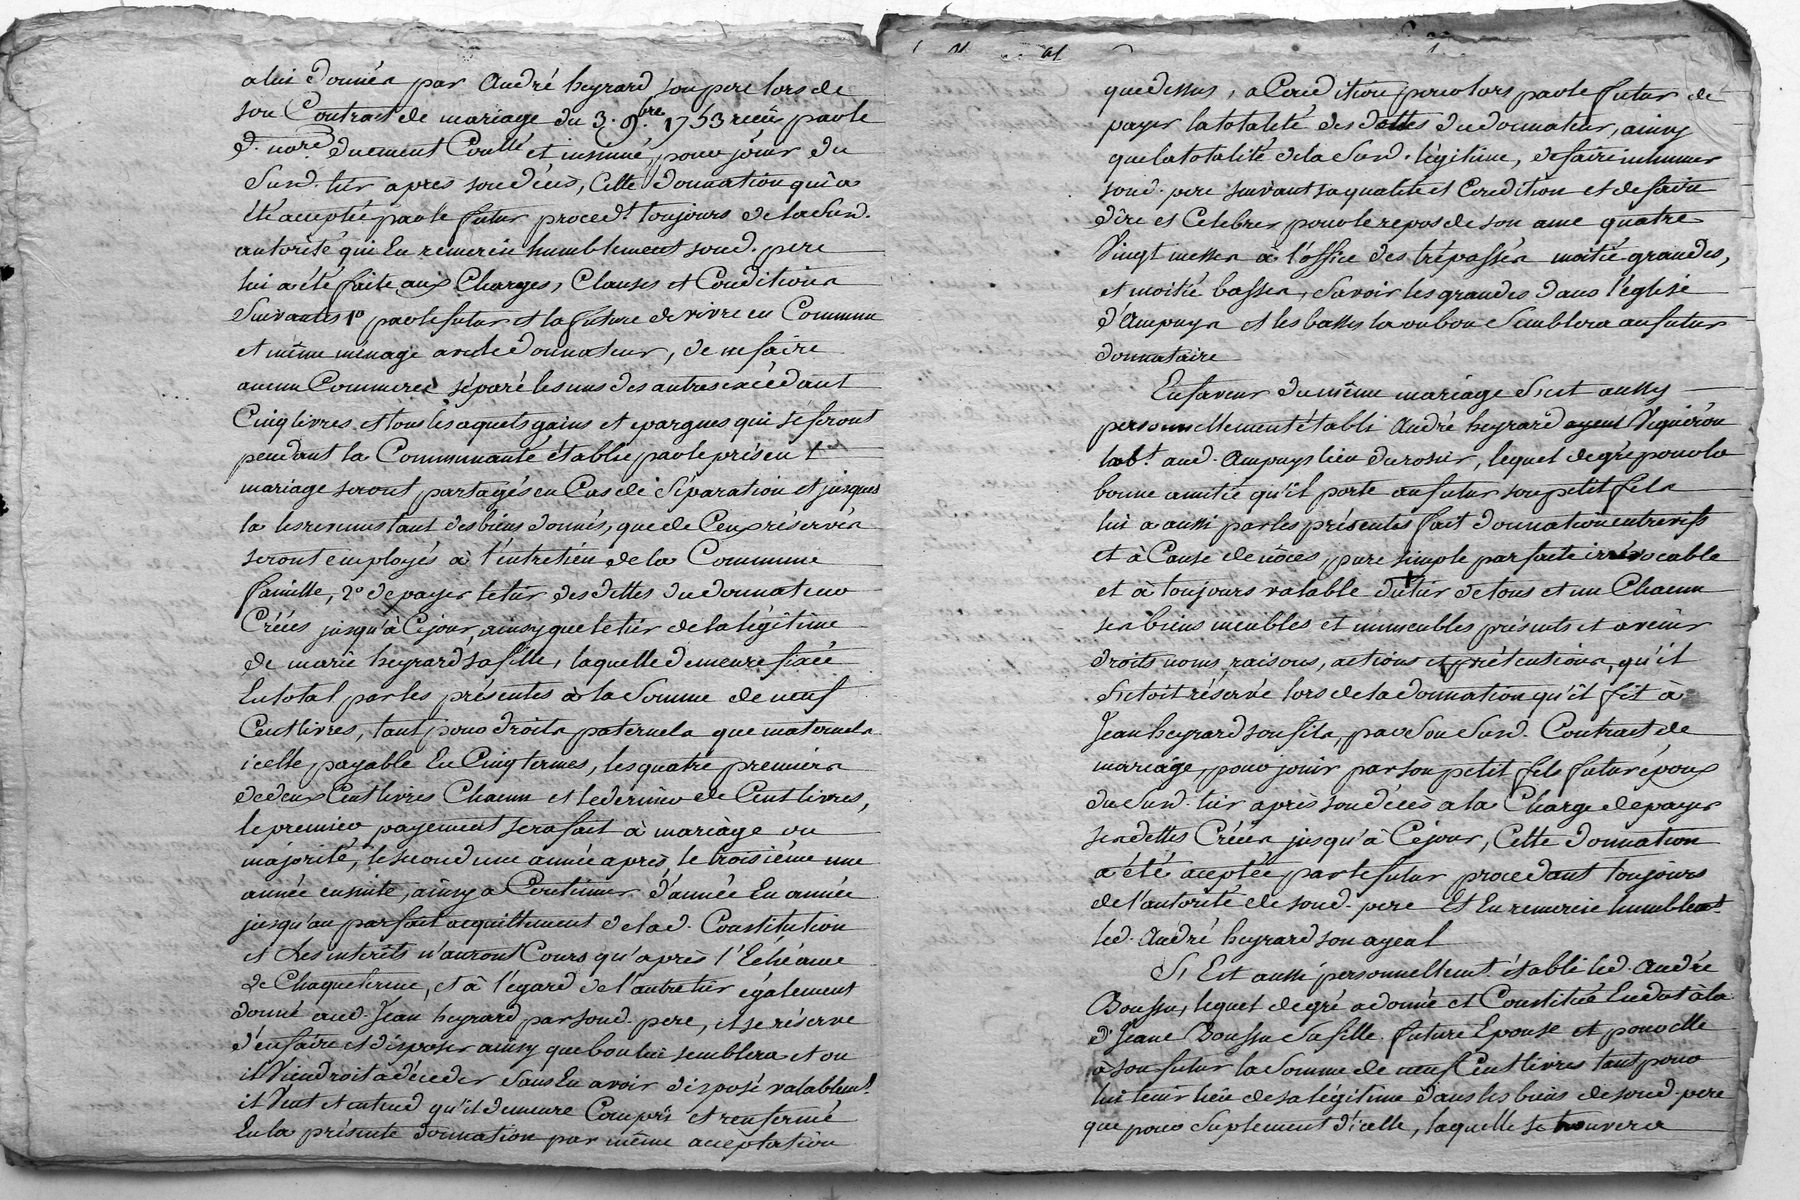 a lui donnés par André heyrard son pere lors de
son Contract de mariage du 3. 9.bre 1753 recû par le
d. nore duement Coullé et insinué, pour jouir du
Susd. tier apres son décès, Cette donnation qui a
été acceptée par le futur proced.t toujours de la Susd.
autorité qui En remercie humblement sond. pere
lui a été faite aux Charges, Clauses et Conditions
Suivantes 1o par le futur et la future de vivre en Commun
et même ménage avec le donnateur, de ne faire
aucun Commerce séparé les uns des autres excédant
Cinq livres, et tous les aquets gains et epargnes qui se feront
pendant la Communauté établie par le présent
mariage seront partagés en Cas de Séparation et jusques
la les revenus tant des biens donnés, que de Ceux réservés
seront employés à l'entretien de la Commune
famille, 2o de payer le tier des dettes du donnateur
Créés jusqu'à Cejour, ainsy que le tier de la légitime
de marie heyrard sa fille, laquelle demeure fixée
En total par les présentes à la Somme de neuf
Cent livres, tant pour droits paternels que maternels
icelle payable En Cinq termes, les quatre premiers
de deux Cent livres Chacun et le dernier de Cent livres,
le premier payement sera fait à mariage ou
majorité, le second une année après, le troisième une
année ensuite, ainsy a Continuer d'année En année
jusqu'au parfait acquittement de lad. Constitution
et des intérêts n'auront Cours qu'après l'Echéance
de Chaque terme, et à l'égard de l'autre tier également
donné aud. Jean heyrard par sond. pere, il se réserve
d'en faire et disposer ainsy que bon lui semblera et ou
il Viendroit a déceder Sans En avoir disposé valablem.t
il Veut et entend qu'il demeure Compris et renfermé
En la présente donnation par même acceptation
que dessus, a Condition pour lors par le futur de
payer la totalité des dettes du donnateur, ainsy
que la totalité de la Susd. légitime, de faire inhumer
sond. pere suivant sa qualité et Condition et de faire
dire et Celebrer pour le repos de son ame quatre
Vingt messes à l'office des trépassés moitié grandes,
et moitié basses, Savoir les grandes dans l'église
d'Ampuys et les basses la ou bon Semblera au futur
donnataire
En faveur du même mariage S'est aussy
personnellement établi André heyrard ayeul Vigneron
hab.t aud. Ampuys lieu du rosier, lequel de gré pour la
bonne amitié qu'il porte au futur son petit fils
lui a aussi par les présentes fait donnation entrevifs
et à Cause de nôces, pure simple parfaite irrévocable
et à toujours valable du tier de tous et un Chacun
ses biens meubles et immeubles présents et avenir
droits noms, raisons, actions et prétentions, qu'il
S'etoit réservé lors de la donnation qu'il fit à
Jean heyrard son fils, par Son Susd. Contract de
mariage, pour jouir par son petit fils futur époux
du Susd. tier après son décès a la Charge de payer
ses dettes Créés jusqu'à Cejour, Cette donnation
a été aceptée par le futur procedant toujours
de l'autorité de sond. pere Et En remercie humblem.t
led. André heyrard son ayeul
S'Est aussi personnellem.t établi led. André
Boussu, lequel de gré a donné et Constitué En dot à la
d.e Jeanne Boussu Sa fille future Epouse et pour elle
à son futur la Somme de neuf Cent livres tant pour
lui tenir lieu de sa légitime dans les biens de sond. pere
que pour Suplement d'icelle, laquelle se trouvera